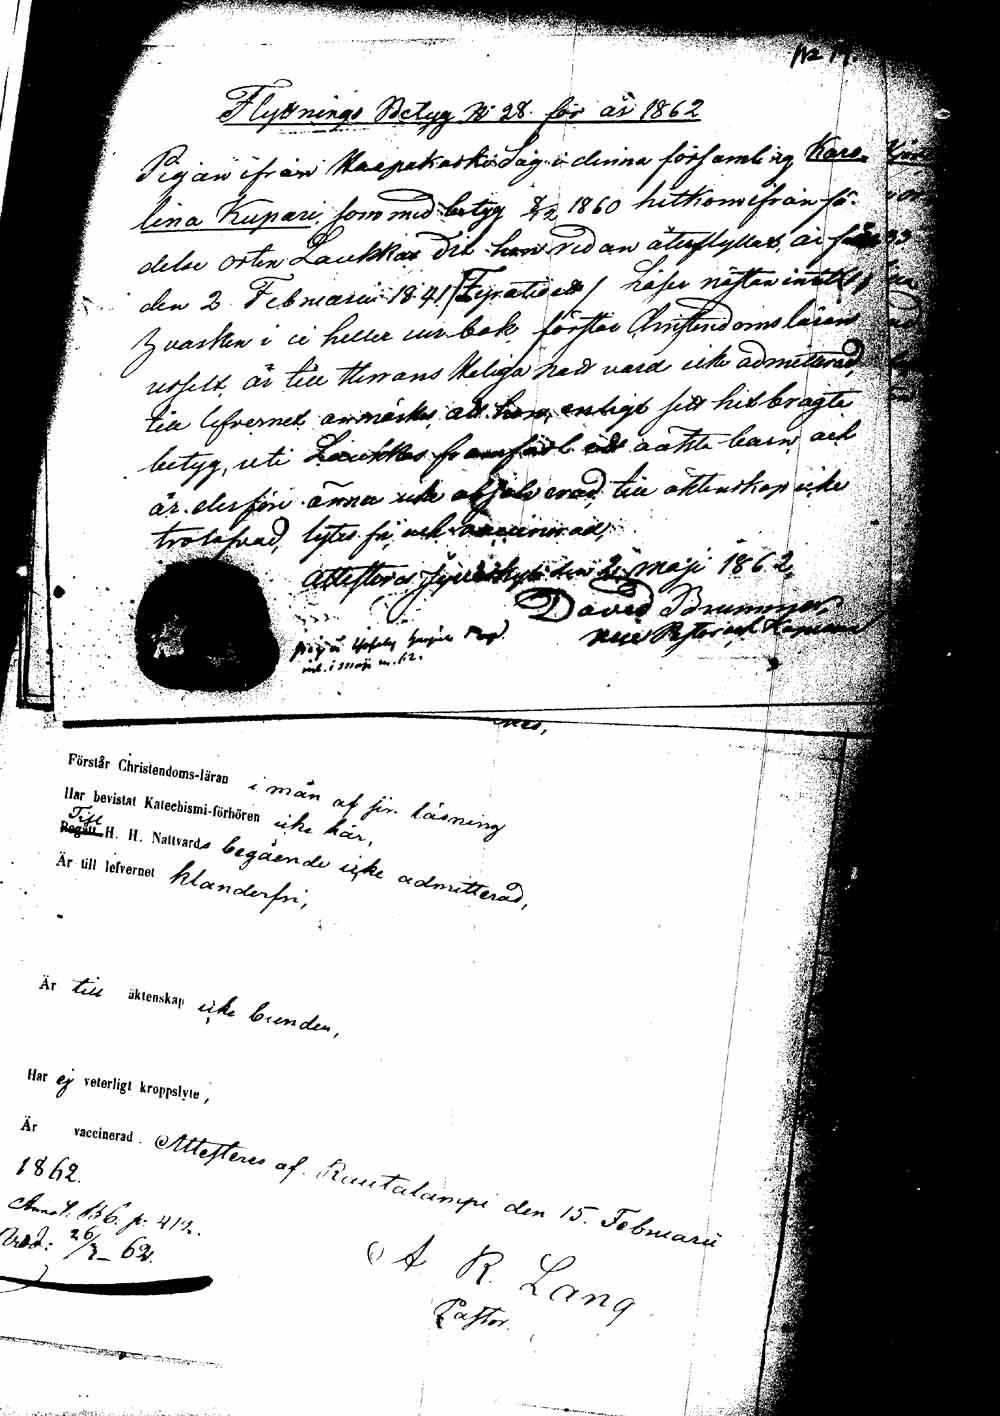 No 19.
Flyttnings Betyg No 28. för år 1862
Pigan ifrån Haapakoski Såg i denna församling Karo-
lina Kupari, som med betyg 1860 hitkom ifrån fö-
delse orten Laukkas dit hon redan återflyttat, är född
den 2 Februarii 1841 läser nästan innantill,
i ej heller ur bok, förstår Christendomsläran
uselt, är till Herrans Heliga natt vard icke admitterad,
till lefvernet anmärkes, att hon, enligt sitt hit bragta
betyg, uti Laukkas framfödt ett oäkta barn, och
är derföre ännu icke absolverad, till äktenskap icke
trolofvad, lytes fri, och vaccinerad,
Attesteras den 2 Maji 1862,
David Brummer,
Vice Pastor och Kapellan
inl. i Maji m. 62.
Förstår Christendoms-läran i mån af sin läsning
Har bevistat Katechismi-förhören icke här,
Till
Begått H. H. Nattvards begående icke admitterad,
Är till lefvernet klanderfri,
Är till äktenskap icke bunden,
Har ej veterligt kroppslyte,
Är vaccinerad. Attesteras af Rautalampi den 15. Februarii
1862.
p. 412.
26/3 – 62.
A R. Lang
Pastor.